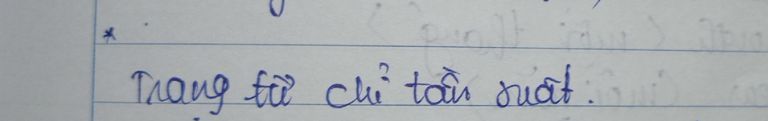 *
Trạng từ chỉ tần suất.